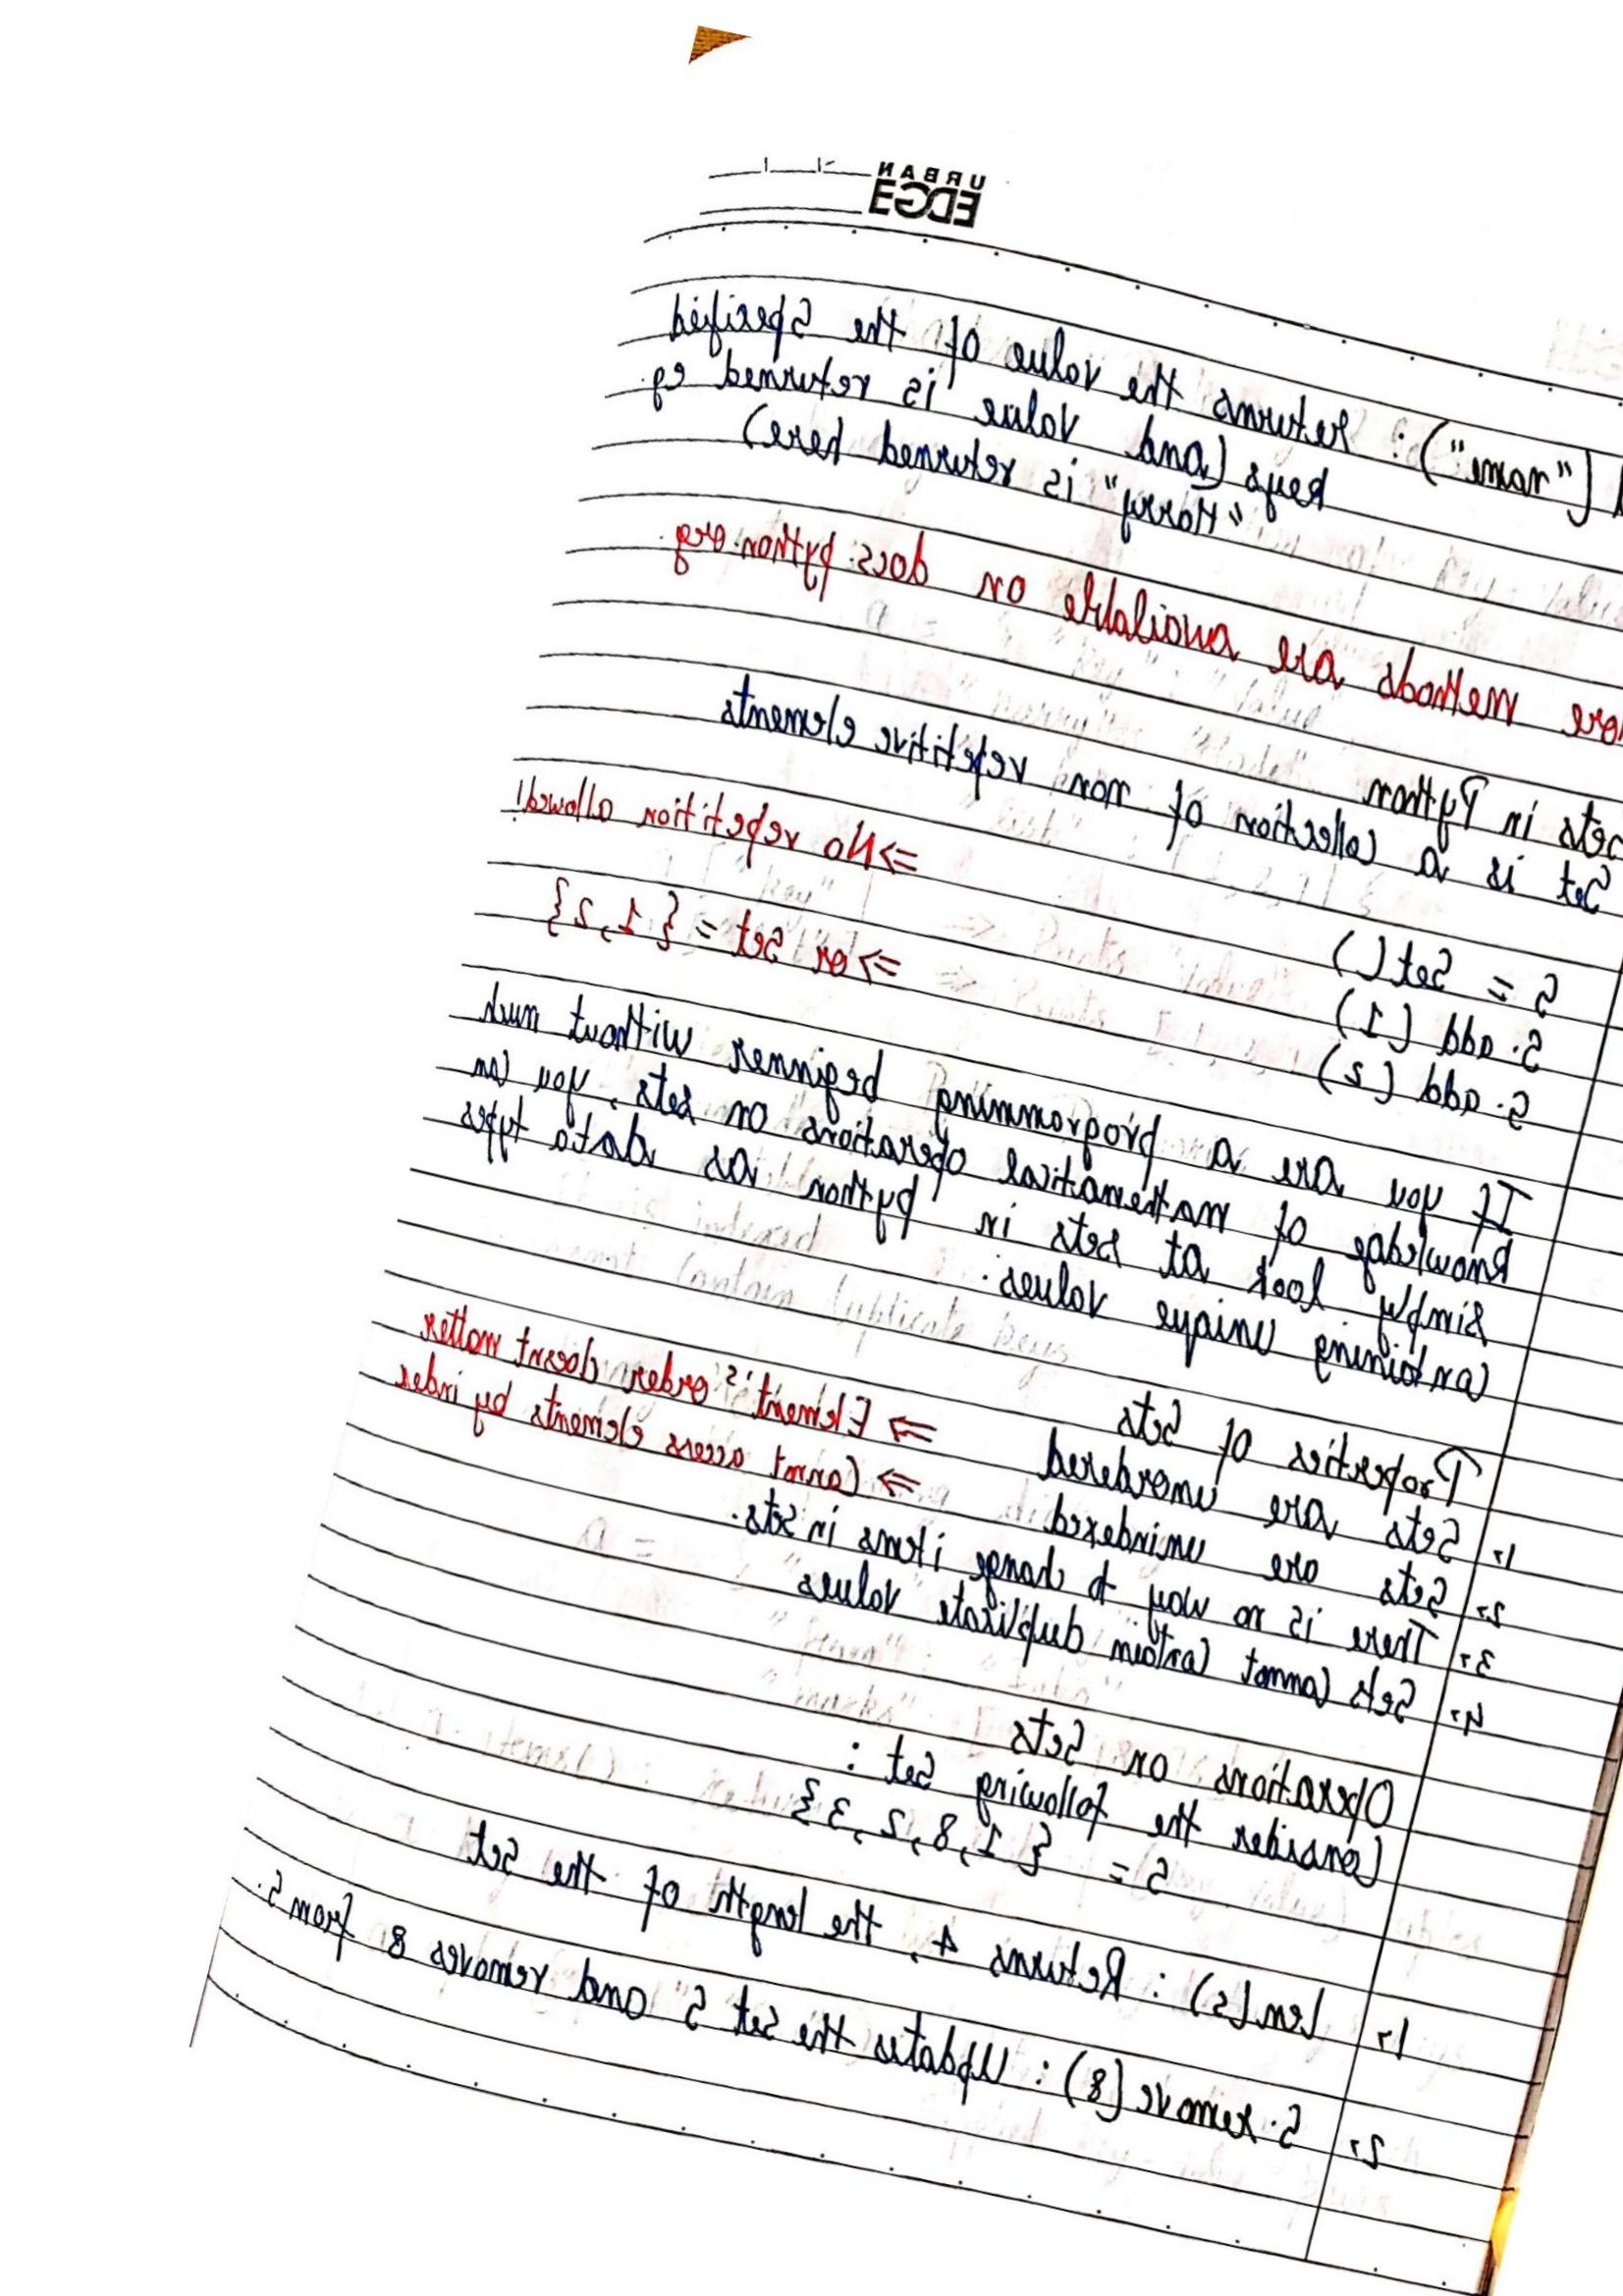 URBAN
EDGE
("name") : Returns the value of the Specified
keys (and value is returned eg.
"Harry" is returned here)
ore methods are available on docs.python.org.
Sets in Python
Set is a collection of non repetitive elements
S = Set() => No repetition allowed!
S.add (1)
S.add (2) => or Set = {1,2}
If you are a programming beginner without much
knowledge of mathematical operations on sets, you can
simply look at sets in python as data types
containing unique values.
Properties of Sets
1. Sets are unordered => Element's order doesnt matter
2. Sets are unindexed => Cannot access elements by index
3. There is no way to change items in sets.
4. Sets cannot contain duplicate values
Operations on Sets
Consider the following Set :
S = {1,8,2,3}
1. Len(s) : Returns 4, the length of the Set
2. S.remove(8) : Updates the Set S and removes 8 from S.